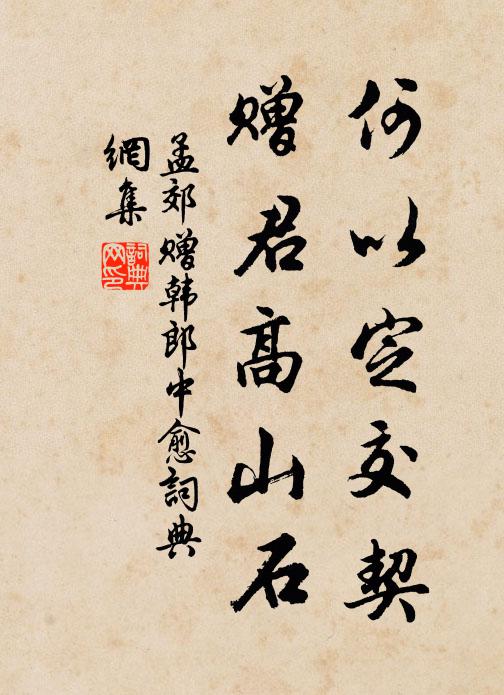 何以定交契
赠君高山石
孟郊赠韩郎中愈詞典
網集
詞典
网印